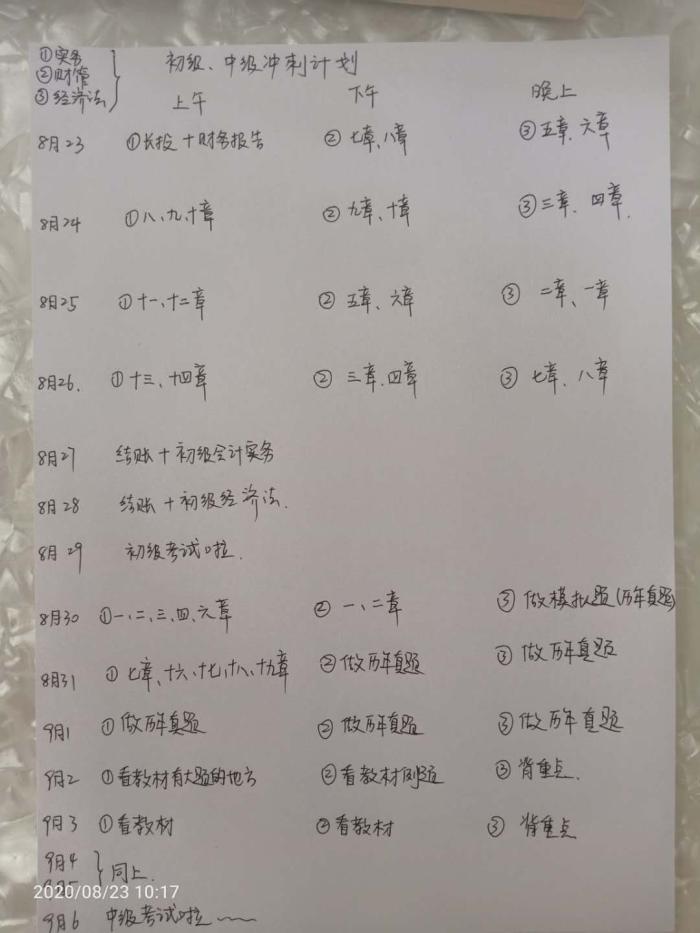 ①实务
②财管
③经济法
初级、中级冲刺计划
上午 下午 晚上
8月23 ①长投+财务报告 ②七章、八章 ③五章、六章
8月24 ①八、九、十章 ②九章、十章 ③三章、四章.
8月25 ①十一、十二章 ②五章、六章 ③二章、一章
8月26. ①十三、十四章 ②三章、四章 ③七章、八章
8月27 结账+初级会计实务
8月28 结账+初级经济法.
8月29 初级考试啦.
8月30 ①一、二、三、四、六章 ②一、二章 ③做模拟题(历年真题)
8月31 ①七章、十六、十七、十八、十九章 ②做历年真题 ③做历年真题
9月1 ①做历年真题 ②做历年真题 ③做历年真题
9月2 ①看教材有大题的地方 ②看教材例题 ③背重点.
9月3 ①看教材 ②看教材 ③背重点
9月4
9月5
同上.
2020/08/23 10:17
9月6 中级考试啦~~